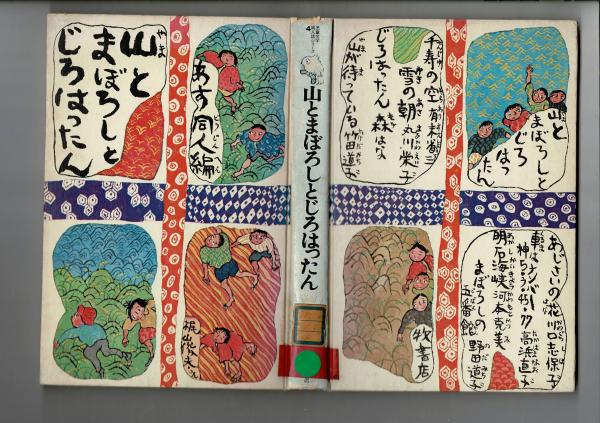 山と
まぼろしと
じろはったん
やま
あす同人編
どうじんへん
梶山俊夫え
山とまぼろしとじろはったん
4
千寿の空
雪の朝 丸川栄子
じろはったん 森はな
山が待っている 竹田道子
山と
まぼろしと
じろ
はっ
たん
牧書店
あじさいの花 川口志保子
軍はナンバー
高浜直子
明石海峡 河本克美
まぼろしの
五番館 野田道子